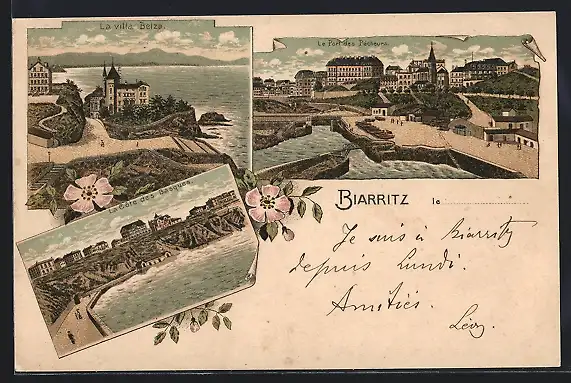 La villa Belza.
Le Port des Pêcheurs.
La Côte des Basques.
BIARRITZ le
Je suis à Biarritz
depuis Lundi.
Amitiés.
Lévy.